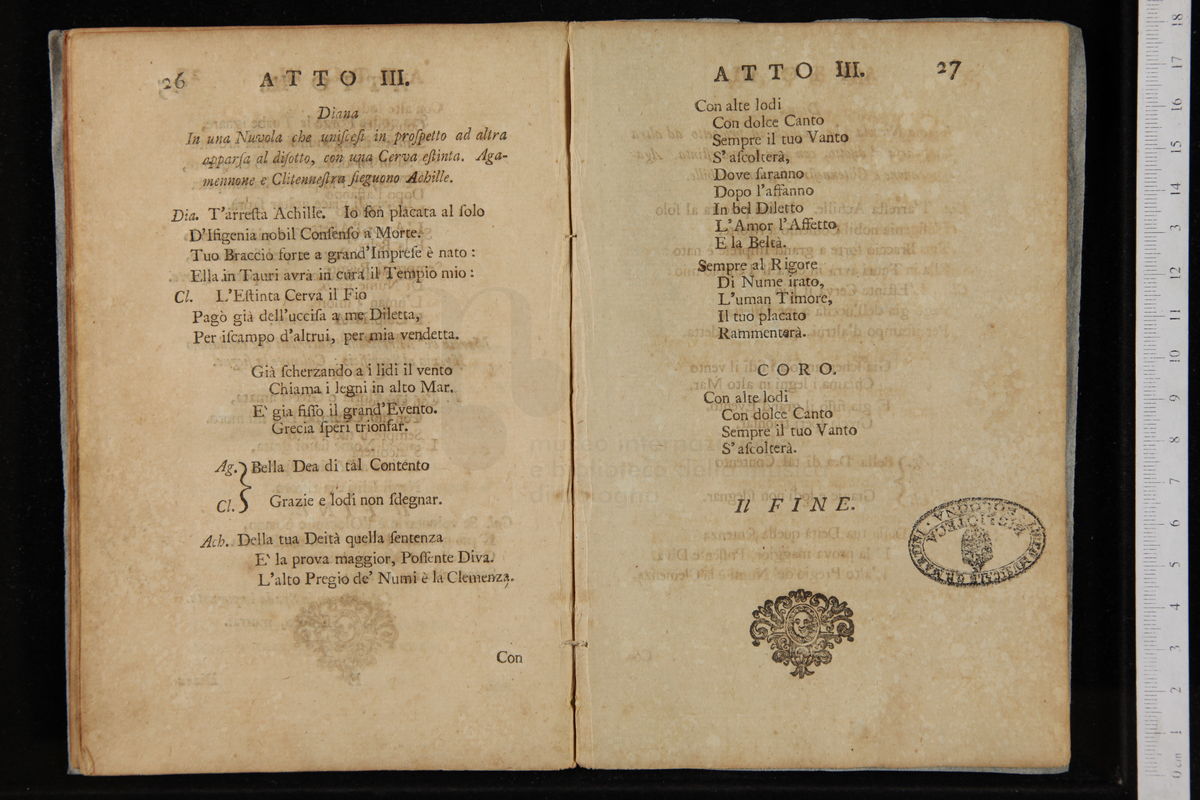 26 ATTO III.
Diana
In una Nuvola che uniſceſi in proſpetto ad altra
apparſa al diſotto, con una Cerva eſtinta. Aga-
mennone e Clitenneſtra ſieguono Achille.
Dia. T'arreſta Achille. Io ſon placata al ſolo
D'Ifigenia nobil Conſenſo a Morte.
Tuo Braccio forte a grand'Impreſe è nato :
Ella in Tauri avrà in cura il Tempio mio :
Cl. L'Eſtinta Cerva il Fio
Pagò già dell'ucciſa a me Diletta,
Per iſcampo d'altrui, per mia vendetta.
Già ſcherzando a i lidi il vento
Chiama i legni in alto Mar.
E' gia fiſſo il grand'Evento.
Grecia ſperi trionfar.
Ag. Bella Dea di tal Contento
Cl. Grazie e lodi non ſdegnar.
Ach. Della tua Deità quella ſentenza
E' la prova maggior, Poſſente Diva.
L'alto Pregio de' Numi è la Clemenza.
Con
ATTO III. 27
Con alte lodi
Con dolce Canto
Sempre il tuo Vanto
S' aſcolterà,
Dove ſaranno
Dopo l'affanno
In bel Diletto
L'Amor l'Affetto
E la Beltà.
Sempre al Rigore
Di Nume irato,
L'uman Timore,
Il tuo placato
Rammenterà.
CORO.
Con alte lodi
Con dolce Canto
Sempre il tuo Vanto
S' aſcolterà.
Il FINE.
BIBLIOTECA
BOLOGNA
museo internazionale
e biblioteca della
di bologna
0 cm 1 2 3 4 5 6 7 8 9 10 11 12 13 14 15 16 17 18